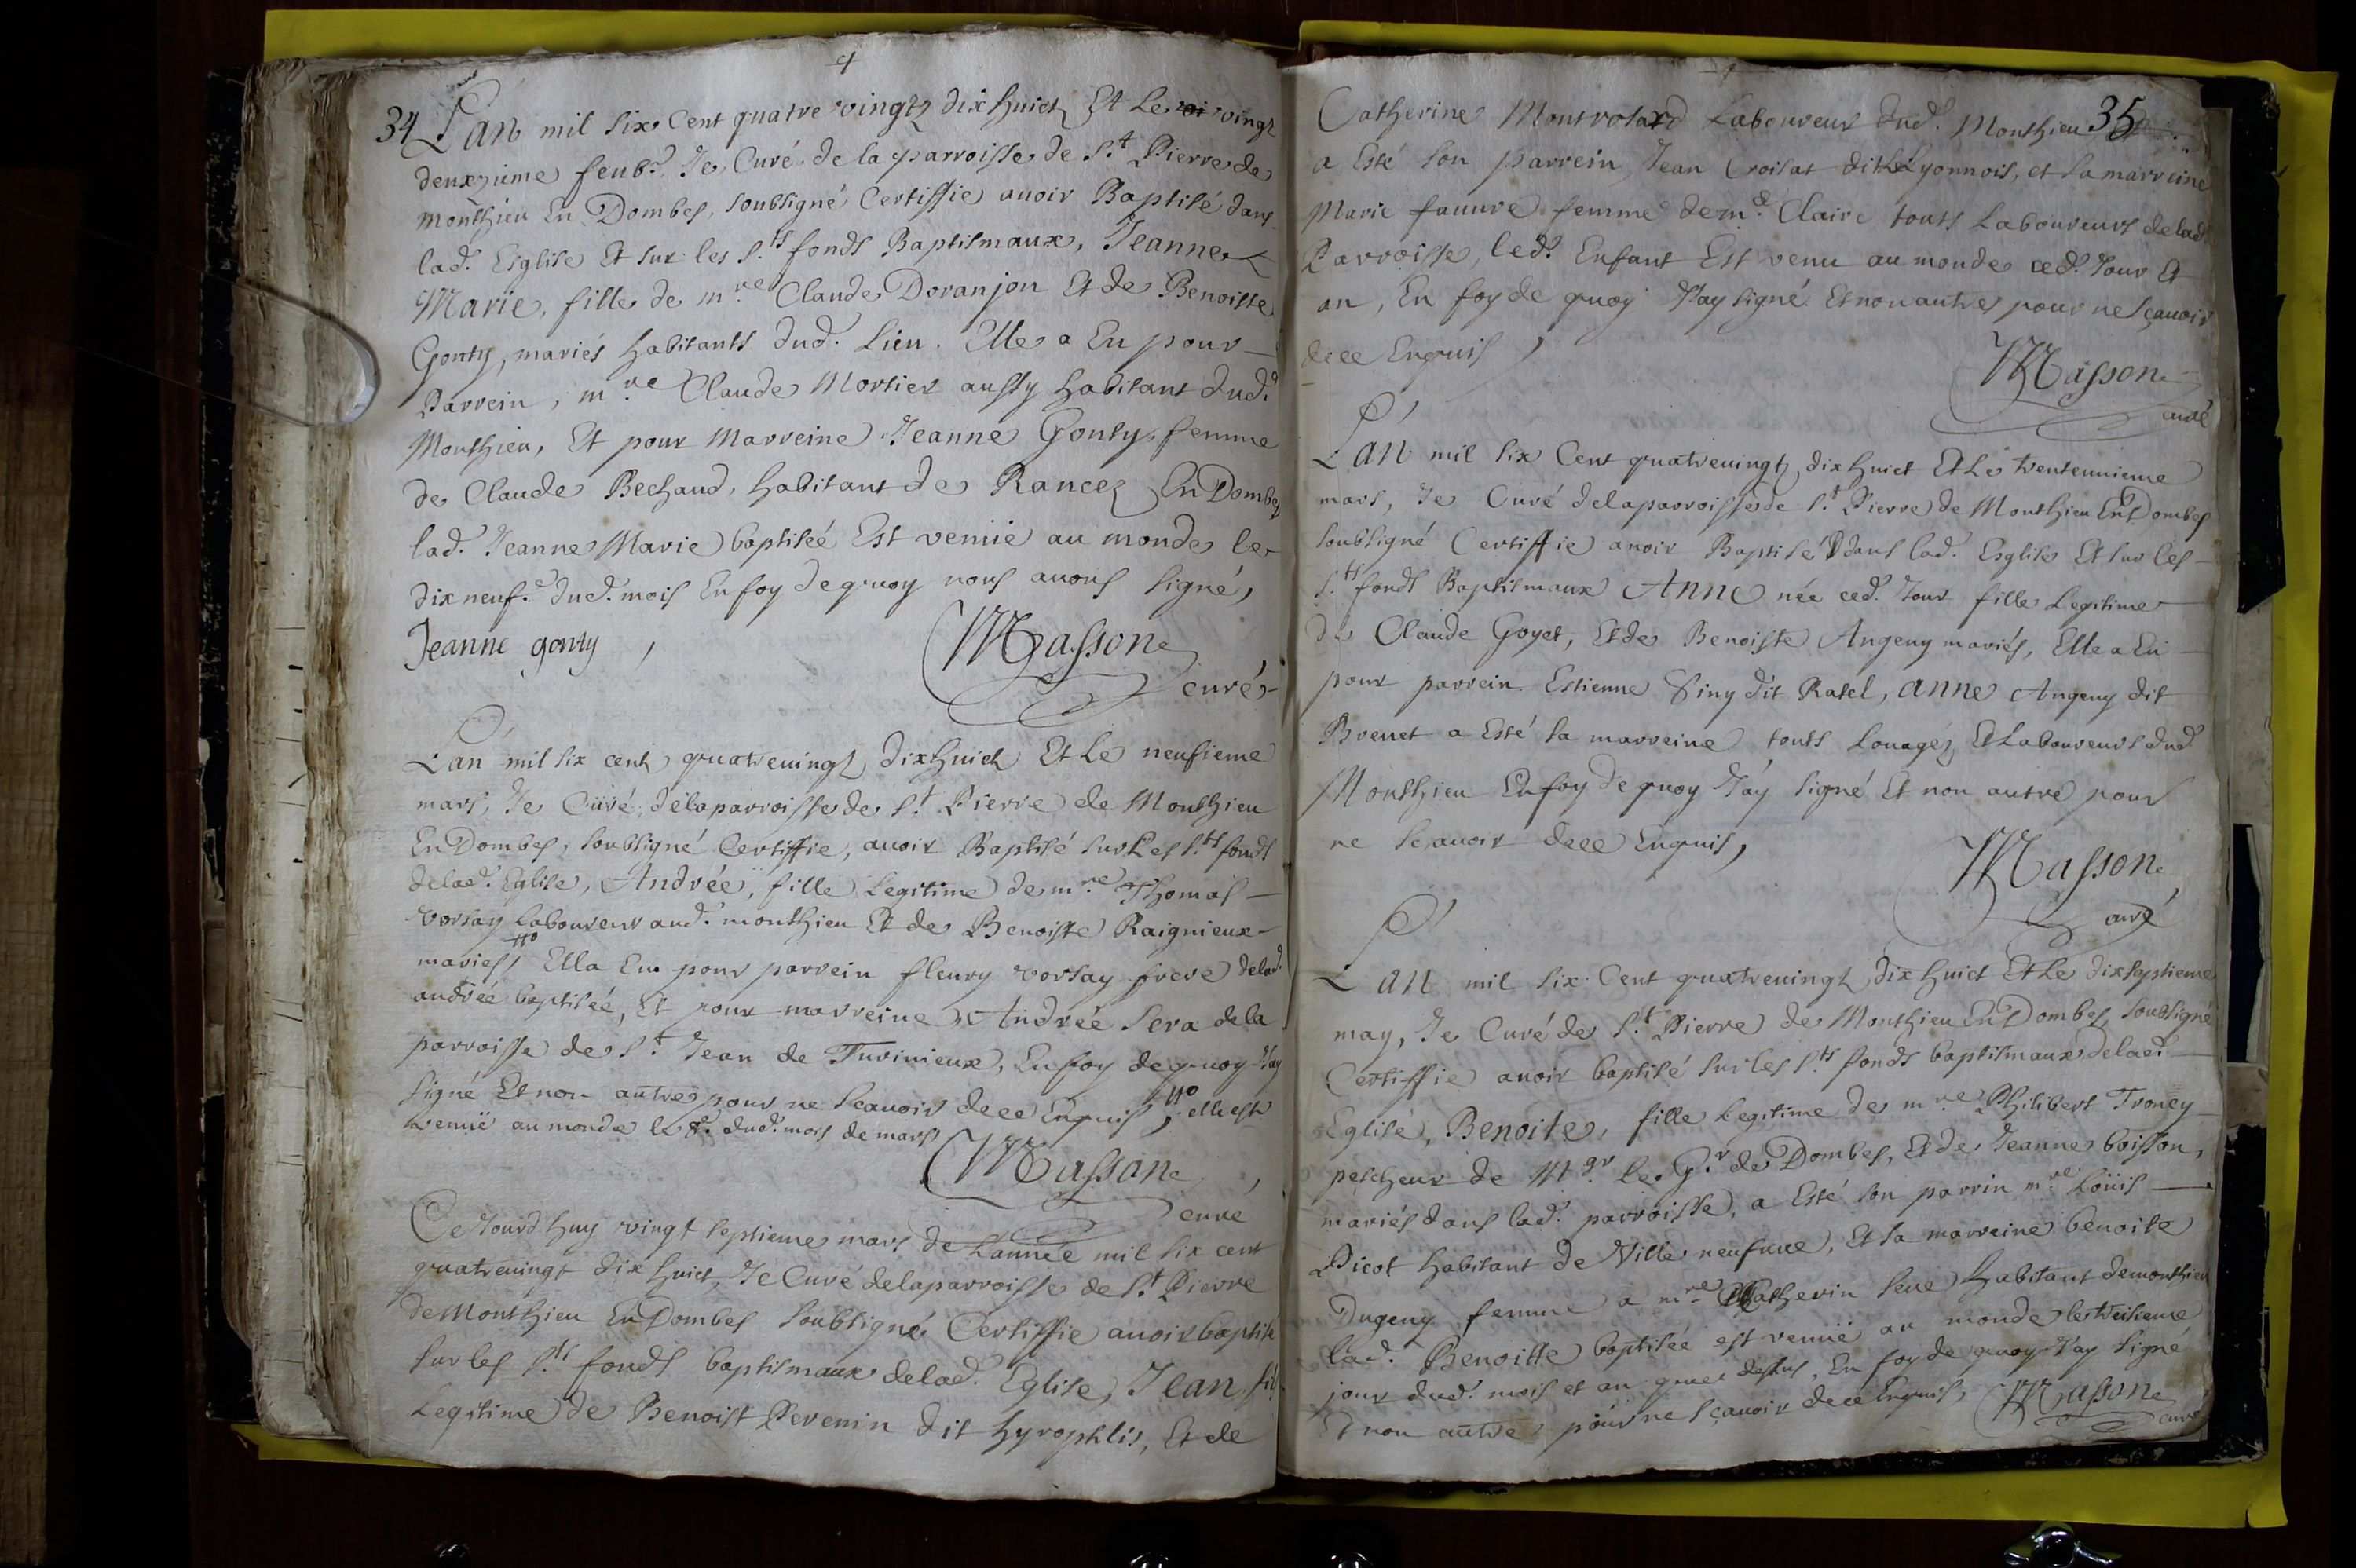 34 L'an mil six Cent quatre vingtz dix huict Et Le vingt
deuxzieme feubr. Je Curé de la parroisse de St. Pierre de
monthieu En Dombes, soubsigné Certiffie auoir Baptisé dans
lad. Esglise Et sur les Sts. fonds Baptismaux, Jeanne
Marie, fille de mre Claude Doranjon Et de Benoiste
Gonty, mariés habitants dud. Lieu. Elle a Eu pour
Parrein, mre Claude Mortier aussy habitant dud.
Monthieu, Et pour Marreine Jeanne Gonty, femme
de Claude Bechaud, habitant de Rancez En Dombes
lad. Jeanne Marie baptisée Est venüe au monde le
dix neuf.e dud. mois En foy de quoy nous auons signé,
Jeanne gonty , Masson
curé
L'an mil six cent quatreuingt dix huict Et Le neufieme
mars, Je Curé de la parroisse de St. Pierre de Monthieu
En Dombes, soubsigné Certiffie, auoir Baptisé sur Les Sts. fonds
de lad. Eglise, Andrée, fille Legitime de mre Thomas
vorsay Laboureur aud. monthieu Et de Benoiste Raignieux
mariés, Ella Eu pour parrein fleury vorsay frere de lad.
andrée baptisée, Et pour marreine Andrée Sera de la
parroisse de St. Jean de Turinieux, En foy de quoy J'ay
signé Et non autres pour ne scauoir de ce Enquis, elle est
venüe au monde le 8e. dud. mois de mars
Masson
curé
Ce Jourd'huy vingt septieme mars de L'année mil six cent
quatreuingt dix huict, Je Curé de la parroisse de St. Pierre
de Monthieu En Dombes soubsigné Certiffie auoir baptisé
sur les Sts. fonds baptismaux de lad. Eglise, Jean fils
Legitime de Benoist Perenin dit hyrophlis, Et de
35
Catherine Montrotard Laboureur dud. Monthieu
a Esté son parrein Jean Croisat dit Le Lyonnois, et sa marreine
Marie fauure femme de md. Claire touts Laboureurs de lad.
Parroisse, led. Enfant Est venu au monde ced. Jour Et
an, En foy de quoy J'ay signé Et non autres pour ne sçauoir
de ce Enquis, Masson
curé
L'an mil six Cent quatreuingt dix huict Et Le trenteunieme
mars, Je Curé de la parroisse de St. Pierre de Monthieu En Dombes
soubsigné Certiffie auoir Baptisé dans lad. Esglise Et sur les
Sts. fonds Baptismaux Anne née ced. Jour fille Legitime
de Claude Goyet, Et de Benoiste Angeny mariés, Elle a Eu
pour parrein Estienne Siny dit Ratel, anne Angeny dit
Brevet a Esté sa marreine touts Louagez Et Laboureurs dud.
Monthieu En foy de quoy J'ay signé Et non autre pour
ne scauoir de ce Enquis,
Masson
curé
L'an mil six Cent quatreuingt dix huict Et Le dixseptieme
may, Je Curé de St. Pierre de Monthieu En Dombes, soubsigné
Certiffie auoir baptisé sur les Sts. fonds baptismaux de lad.
Eglise, Benoite, fille Legitime de mre Philibert Troney
pescheur de Mgr. le Gr. de Dombes, Et de Jeanne boisson,
mariés dans lad. parroisse, a Esté son parrin mre Loüis
Picot habitant de Ville neufuue, Et sa marreine benoite
Dugeny femme a mre Catherin seue habitant de monthieu
lad. Benoitte baptisée est venüe au monde le treisieme
jour dud. mois et an que dessus, En foy de quoy J'ay signé
Et non autre pour ne sçauoir de ce Enquis, Masson
curé